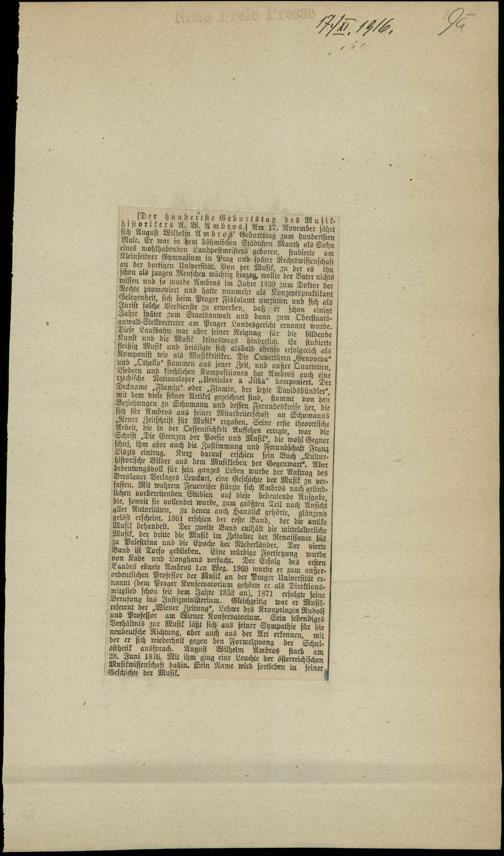 Neue Freie Presse
17/XI. 1916.
[Der hundertste Geburtstag des Musik-
historikers A. W. Ambros.] Am 17. November jährt
sich August Wilhelm Ambros' Geburtstag zum hundertsten
Male. Er war in dem böhmischen Städtchen Mauth als Sohn
eines wohlhabenden Landpostmeisters geboren, studierte am
Kleinseitner Gymnasium in Prag und später Rechtswissenschaft
an der dortigen Universität. Von der Musik, zu der es ihn
schon als jungen Menschen mächtig hinzog, wollte der Vater nichts
wissen und so wurde Ambros im Jahre 1839 zum Doktor der
Rechte promoviert und hatte nunmehr als Konzeptspraktikant
Gelegenheit, sich beim Prager Fiskalamt umzutun und sich als
Jurist solche Verdienste zu erwerben, daß er schon einige
Jahre später zum Staatsanwalt und dann zum Oberstaats-
anwalt-Stellvertreter am Prager Landesgericht ernannt wurde.
Diese Laufbahn war aber seiner Neigung für die bildende
Kunst und die Musik keineswegs hinderlich. Er studierte
fleißig Musik und betätigte sich alsbald ebenso erfolgreich als
Komponist wie als Musikkritiker. Die Ouvertüren „Genoveva"
und „Othello" stammen aus jener Zeit, und außer Quartetten,
Liedern und kirchlichen Kompositionen hat Ambros auch eine
tschechische Nationaloper „Bretislav a Jitka" komponiert. Der
Deckname „Flamin" oder „Flamin, der letzte Davidsbündler",
mit dem viele seiner Artikel gezeichnet sind, stammt von den
Beziehungen zu Schumann und dessen Freundeskreise her, die
sich für Ambros aus seiner Mitarbeiterschaft an Schumanns
„Neuer Zeitschrift für Musik" ergaben. Seine erste theoretische
Arbeit, die in der Oeffentlichkeit Aufsehen erregte, war die
Schrift „Die Grenzen der Poesie und Musik", die wohl Gegner
schuf, ihm aber auch die Zustimmung und Freundschaft Franz
Liszts eintrug. Kurz darauf erschien sein Buch „Kultur-
historische Bilder aus dem Musikleben der Gegenwart". Aber
bedeutungsvoll für sein ganzes Leben wurde der Auftrag des
Breslauer Verlages Leuckart, eine Geschichte der Musik zu ver-
fassen. Mit wahrem Feuereifer stürzte sich Ambros nach gründ-
lichen vorbereitenden Studien auf diese bedeutende Aufgabe,
die, soweit sie vollendet wurde, zum größten Teil nach Ansicht
aller Autoritäten, zu denen auch Hanslick gehörte, glänzend
gelöst erscheint. 1861 erschien der erste Band, der die antike
Musik behandelt. Der zweite Band enthält die mittelalterliche
Musik, der dritte die Musik im Zeitalter der Renaissance bis
zu Palestrina und die Epoche der Niederländer. Der vierte
Band ist Torso geblieben. Eine würdige Fortsetzung wurde
von Kade und Langhans versucht. Der Erfolg des ersten
Bandes ebnete Ambros den Weg. 1869 wurde er zum außer-
ordentlichen Professor der Musik an der Prager Universität er-
nannt (dem Prager Konservatorium gehörte er als Direktions-
mitglied schon seit dem Jahre 1852 an), 1871 erfolgte seine
Berufung ins Justizministerium. Gleichzeitig war er Musik-
referent der „Wiener Zeitung", Lehrer des Kronprinzen Rudolf
und Professor am Wiener Konservatorium. Sein lebendiges
Verhältnis zur Musik läßt sich aus seiner Sympathie für die
neudeutsche Richtung, aber auch aus der Art erkennen, mit
der er sich wiederholt gegen den Formelzwang der Schul-
ästhetik aussprach. August Wilhelm Ambros starb am
28. Juni 1876. Mit ihm ging eine Leuchte der österreichischen
Musikwissenschaft dahin. Sein Name wird fortleben in seiner
Geschichte der Musik.